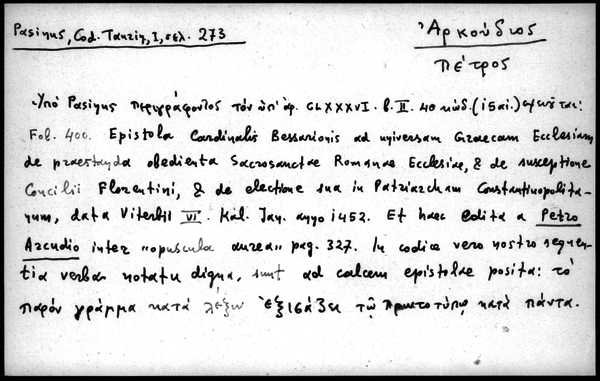 Pasinus, Cod. Taurin, I, σελ. 273
Ἀρκούδιος
Πέτρος
Ὑπό Pasinus περιγράφοντος τόν ὑπ' ἀρ. CLXXXVI. b. II. 40 κώδ. (15 αἰ.)
Fol. 400. Epistola Cardinalis Bessarionis ad universam Graecam Ecclesiam
de praestanda obedientia Sacrosanctae Romanae Ecclesiae, & de susceptione
Concilii Florentini, & de electione sua in Patriarcham Constantinopolita-
num, data Viterbii VI. Kal. Jan. anno 1452. Et haec edita a Petro
Arcudio inter "opuscula aurea" pag. 327. In codice vero nostro sequen-
tia verba notatu digna, sunt ad calcem epistolae posita: τό
παρόν γράμμα κατά λέξιν ἐξισάζει τῷ πρωτοτύπῳ κατά πάντα.